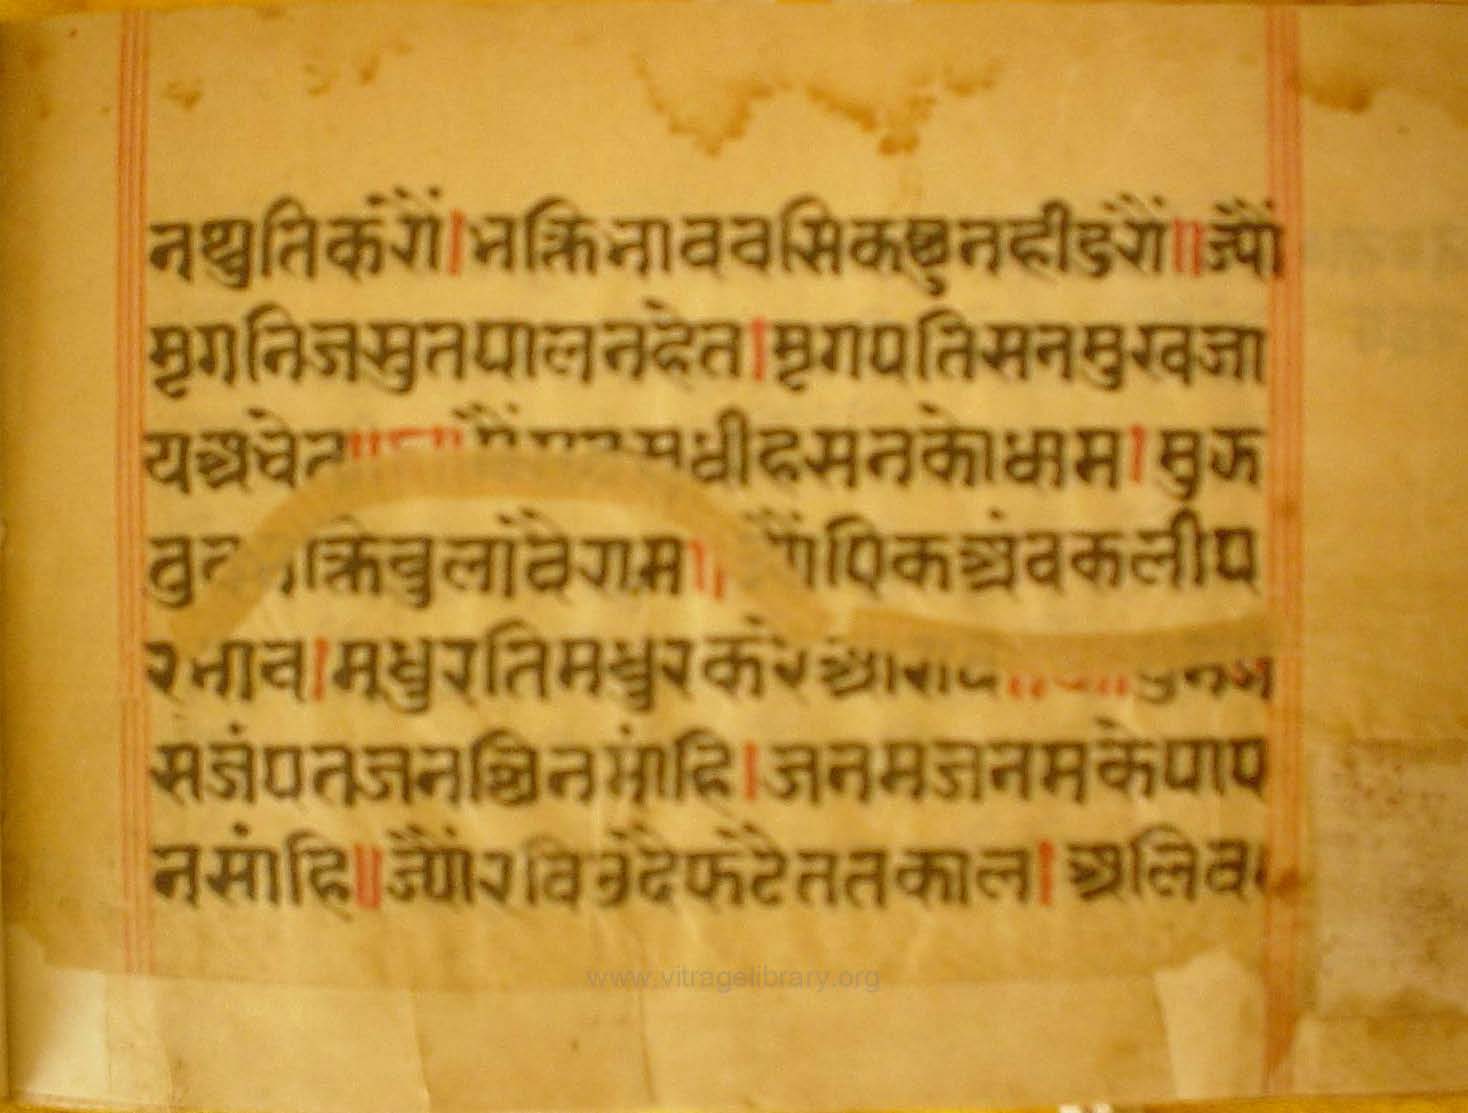 नथुतिकंरौं।भक्तिभाववसिकछुनहीडरौं॥ज्यौं
मृगनिजसुतपालनहेत।मृगपतिसनमुखजा
यअचेत सुधीहसनकोधाम।मुऊ
भक्तिबुलांवैराम॥ ज्यौंपिकअंवकलीप
रभाव।मधुरतिमधुरकरेआराव
सजंपतजनछिनमांहि।जनमजनमकेपाप
नसांहि॥ज्यौंरविउदैफटैततकाल।अलिव
www.vitragelibrary.org